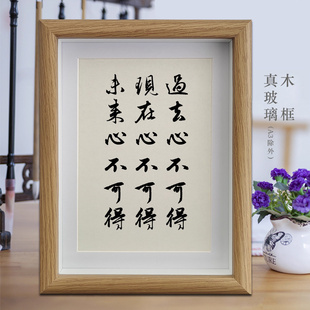 過去心不可得
現在心不可得
未来心不可得
木框
真玻璃
(A3除外)